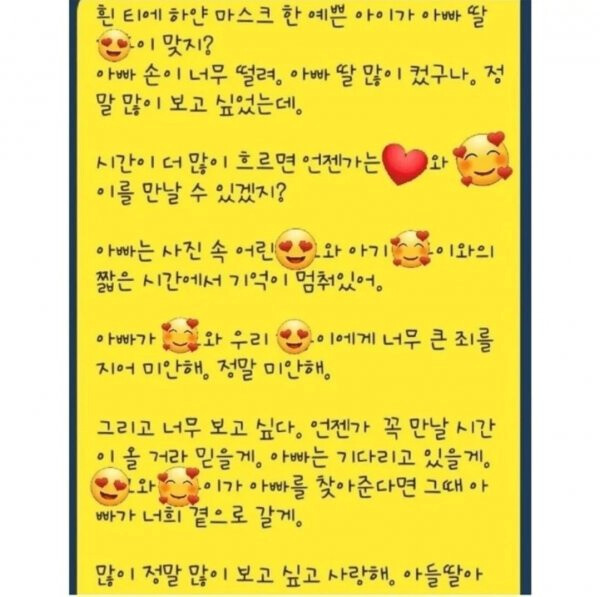 흰 티에 하얀 마스크 한 예쁜 아이가 아빠 딸
😍이 맞지?
아빠 손이 너무 떨려, 아빠 딸 많이 컸구나, 정
말 많이 보고 싶었는데,
시간이 더 많이 흐르면 언젠가는❤️와 🥰
이를 만날 수 있겠지?
아빠는 사진 속 어린😍와 아기🥰이와의
짧은 시간에서 기억이 멈춰있어,
아빠가 🥰와 우리 😍이에게 너무 큰 죄를
지어 미안해, 정말 미안해,
그리고 너무 보고 싶다, 언젠가 꼭 만날 시간
이 올 거라 믿을게, 아빠는 기다리고 있을게,
😍와🥰이가 아빠를 찾아준다면 그때 아
빠가 너희 곁으로 갈게,
많이 정말 많이 보고 싶고 사랑해, 아들딸아